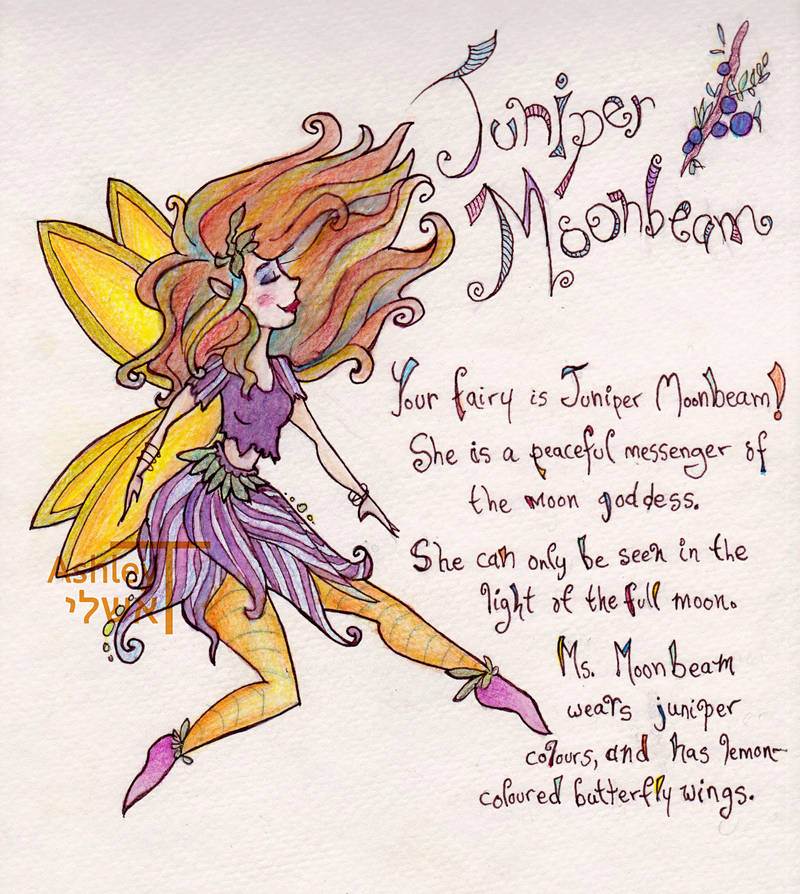 Juniper
Moonbeam
Your fairy is Juniper Moonbeam!
She is a peaceful messenger of
the moon goddess.
She can only be seen in the
light of the full moon.
Ms. Moonbeam
wears juniper
colours, and has lemon-
coloured butterfly wings.
Ashley
אשלי